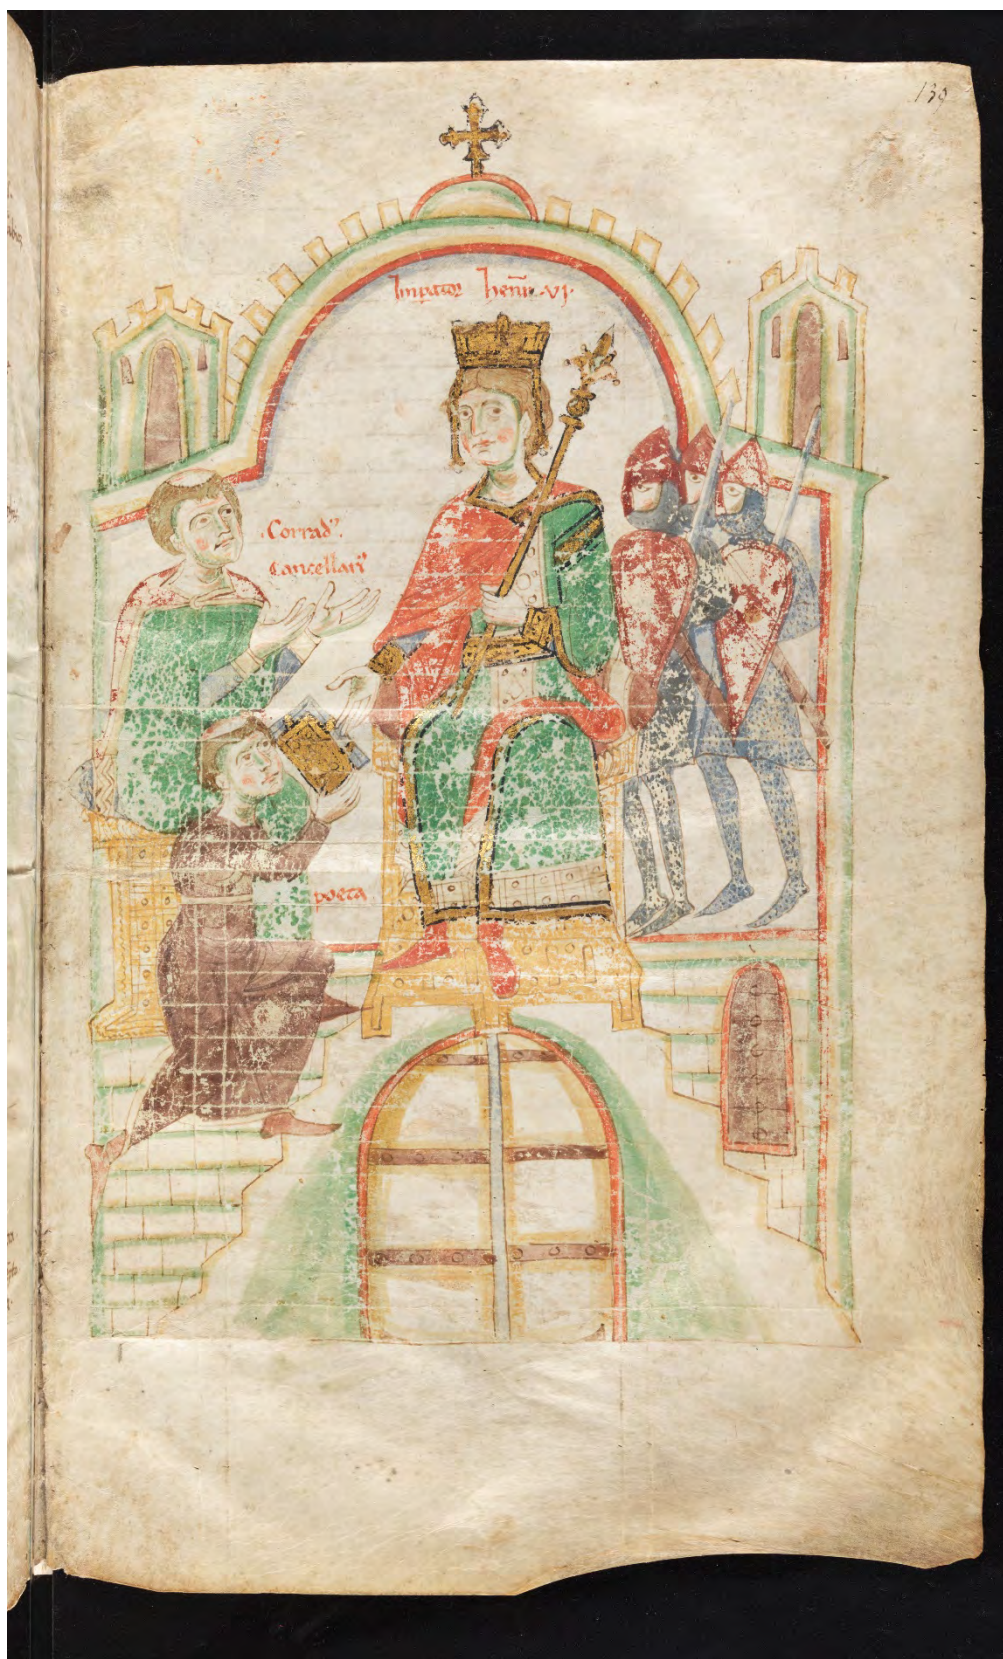 139
Imperator henric VI.
Corrad9.
Cancellari9
poeta